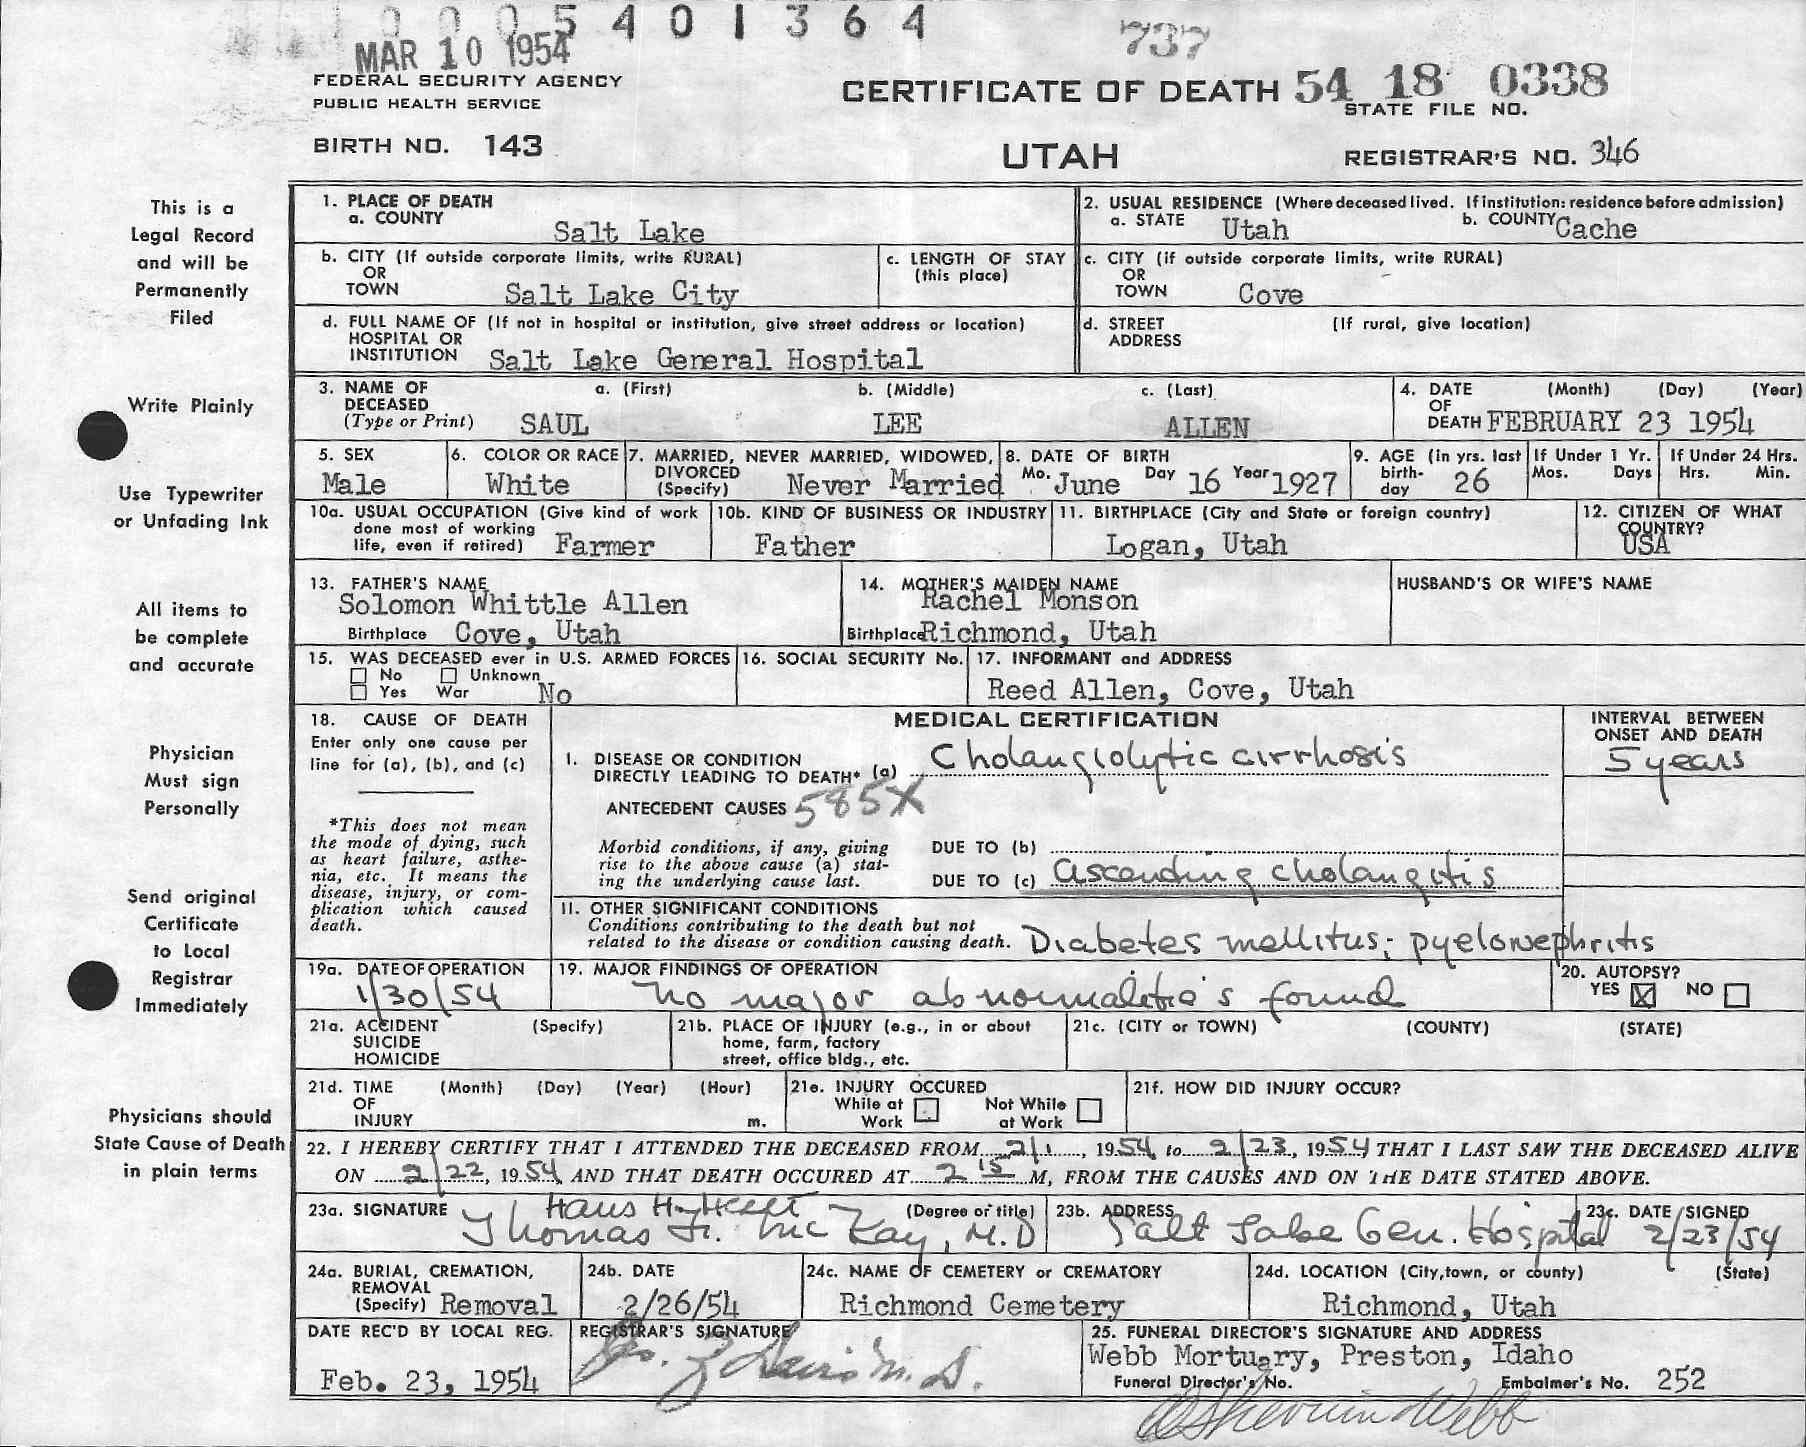 0005401364
737
MAR 10 1954
FEDERAL SECURITY AGENCY
PUBLIC HEALTH SERVICE
CERTIFICATE OF DEATH 54 18 0338
STATE FILE NO.
BIRTH NO. 143
UTAH
REGISTRAR'S NO. 346
This is a
Legal Record
and will be
Permanently
Filed
Write Plainly
Use Typewriter
or Unfading Ink
All items to
be complete
and accurate
Physician
Must sign
Personally
Send original
Certificate
to Local
Registrar
Immediately
Physicians should
State Cause of Death
in plain terms
1. PLACE OF DEATH
a. COUNTY Salt Lake
2. USUAL RESIDENCE (Where deceased lived. If institution: residence before admission)
a. STATE Utah b. COUNTY Cache
b. CITY (If outside corporate limits, write RURAL)
OR
TOWN Salt Lake City
c. LENGTH OF STAY
(this place)
c. CITY (if outside corporate limits, write RURAL)
OR
TOWN Cove
d. FULL NAME OF (If not in hospital or institution, give street address or location)
HOSPITAL OR
INSTITUTION Salt Lake General Hospital
d. STREET (If rural, give location)
ADDRESS
3. NAME OF a. (First) b. (Middle) c. (Last)
DECEASED
(Type or Print) SAUL LEE ALLEN
4. DATE (Month) (Day) (Year)
OF
DEATH FEBRUARY 23 1954
5. SEX
Male
6. COLOR OR RACE
White
7. MARRIED, NEVER MARRIED, WIDOWED,
DIVORCED
(Specify) Never Married
8. DATE OF BIRTH
Mo. June Day 16 Year 1927
9. AGE (in yrs. last
birth-
day 26
If Under 1 Yr.
Mos. Days
If Under 24 Hrs.
Hrs. Min.
10a. USUAL OCCUPATION (Give kind of work
done most of working
life, even if retired) Farmer
10b. KIND OF BUSINESS OR INDUSTRY
Father
11. BIRTHPLACE (City and State or foreign country)
Logan, Utah
12. CITIZEN OF WHAT
COUNTRY?
USA
13. FATHER'S NAME
Solomon Whittle Allen
Birthplace Cove, Utah
14. MOTHER'S MAIDEN NAME
Rachel Monson
Birthplace Richmond, Utah
HUSBAND'S OR WIFE'S NAME
15. WAS DECEASED ever in U.S. ARMED FORCES
No Unknown
Yes War No
16. SOCIAL SECURITY No.
17. INFORMANT and ADDRESS
Reed Allen, Cove, Utah
18. CAUSE OF DEATH
Enter only one cause per
line for (a), (b), and (c)
*This does not mean
the mode of dying, such
as heart failure, asthe-
nia, etc. It means the
disease, injury, or com-
plication which caused
death.
MEDICAL CERTIFICATION
INTERVAL BETWEEN
ONSET AND DEATH
I. DISEASE OR CONDITION
DIRECTLY LEADING TO DEATH* (a) Cholangiolytic cirrhosis
5 years
ANTECEDENT CAUSES 585X
Morbid conditions, if any, giving
rise to the above cause (a) stat-
ing the underlying cause last.
DUE TO (b)
DUE TO (c) ascending cholangitis
II. OTHER SIGNIFICANT CONDITIONS
Conditions contributing to the death but not
related to the disease or condition causing death. Diabetes mellitus; pyelonephritis
19a. DATE OF OPERATION
1/30/54
19. MAJOR FINDINGS OF OPERATION
no major abnormalitie's found
20. AUTOPSY?
YES X NO
21a. ACCIDENT (Specify)
SUICIDE
HOMICIDE
21b. PLACE OF INJURY (e.g., in or about
home, farm, factory
street, office bldg., etc.
21c. (CITY or TOWN) (COUNTY) (STATE)
21d. TIME (Month) (Day) (Year) (Hour)
OF
INJURY m.
21e. INJURY OCCURED
While at Not While
Work at Work
21f. HOW DID INJURY OCCUR?
22. I HEREBY CERTIFY THAT I ATTENDED THE DECEASED FROM 2/1, 1954 to 2/23, 1954 THAT I LAST SAW THE DECEASED ALIVE
ON 2/22, 1954 AND THAT DEATH OCCURED AT 2 15 M, FROM THE CAUSES AND ON THE DATE STATED ABOVE.
23a. SIGNATURE Hans H.
(Degree or title)
Thomas Mc Kay, M.D
23b. ADDRESS
Salt Lake Gen. Hospital
23c. DATE SIGNED
2/23/54
24a. BURIAL, CREMATION,
REMOVAL
(Specify) Removal
24b. DATE
2/26/54
24c. NAME OF CEMETERY or CREMATORY
Richmond Cemetery
24d. LOCATION (City, town, or county) (State)
Richmond, Utah
DATE REC'D BY LOCAL REG.
Feb. 23, 1954
REGISTRAR'S SIGNATURE
Davis M.D.
25. FUNERAL DIRECTOR'S SIGNATURE AND ADDRESS
Webb Mortuary, Preston, Idaho
Funeral Director's No. Embalmer's No. 252
Webb